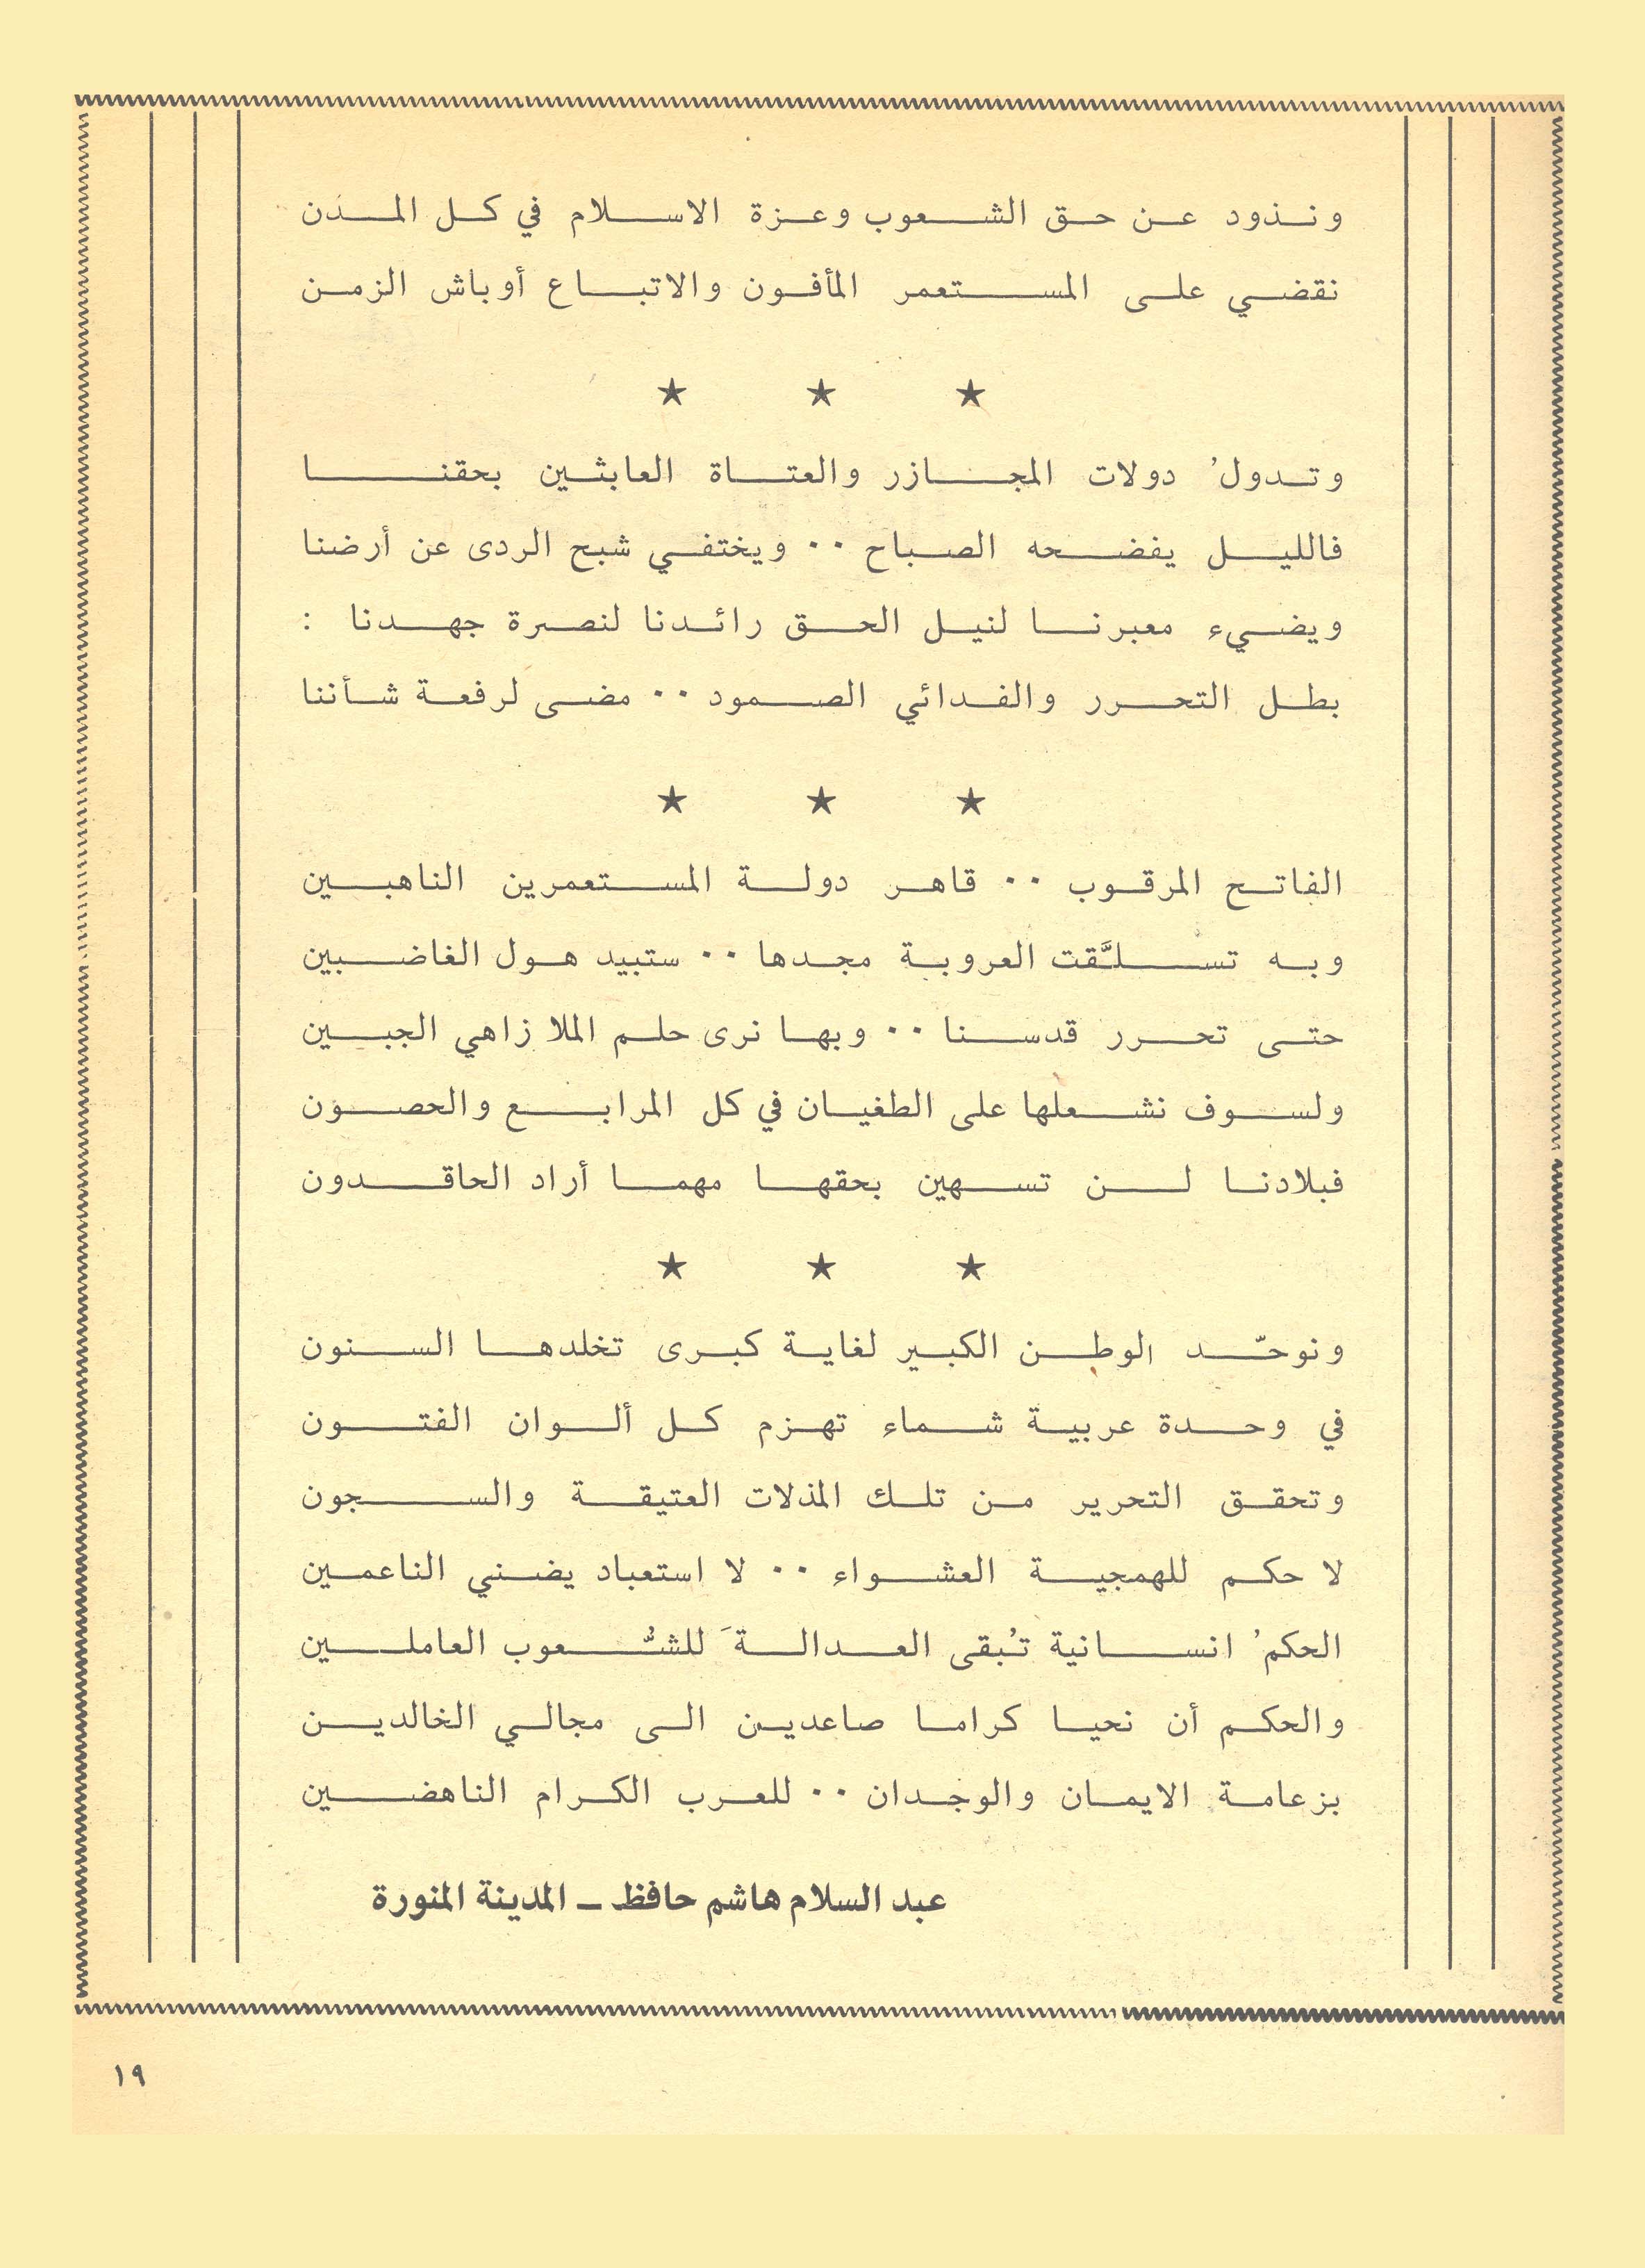 ونذود عن حق الشعوب وعزة الاسلام في كل المدن
نقضي على المستعمر المأفون والاتباع أوباش الزمن
★ ★ ★
وتدولُ دولات المجازر والعتاة العابثين بحقنا
فالليل يفضحه الصباح ٠٠ ويختفي شبح الردى عن أرضنا
ويضيء معبرنا لنيل الحق رائدنا لنصرة جهدنا :
بطل التحرر والفدائي الصمود ٠٠ مضى لرفعة شأننا
★ ★ ★
الفاتح المرقوب ٠٠ قاهر دولة المستعمرين الناهبين
وبه تسلَّقت العروبة مجدها ٠٠ ستبيد هول الغاضبين
حتى تحرر قدسنا ٠٠ وبها نرى حلم الملا زاهي الجبين
ولسوف نشعلها على الطغيان في كل المرابع والحصون
فبلادنا لن تسهين بحقها مهما أراد الحاقدون
★ ★ ★
ونوحّد الوطن الكبير لغاية كبرى تخلدها السنون
في وحدة عربية شماء تهزم كل ألوان الفتون
وتحقق التحرير من تلك المذلات العتيقة والسجون
لا حكم للهمجية العشواء ٠٠ لا استعباد يضني الناعمين
الحكمُ انسانية تُبقى العدالةَ للشُّعوب العاملين
والحكم أن نحيا كراما صاعدين الى مجالي الخالدين
بزعامة الايمان والوجدان ٠٠ للعرب الكرام الناهضين
عبد السلام هاشم حافظ ــ المدينة المنورة
١٩